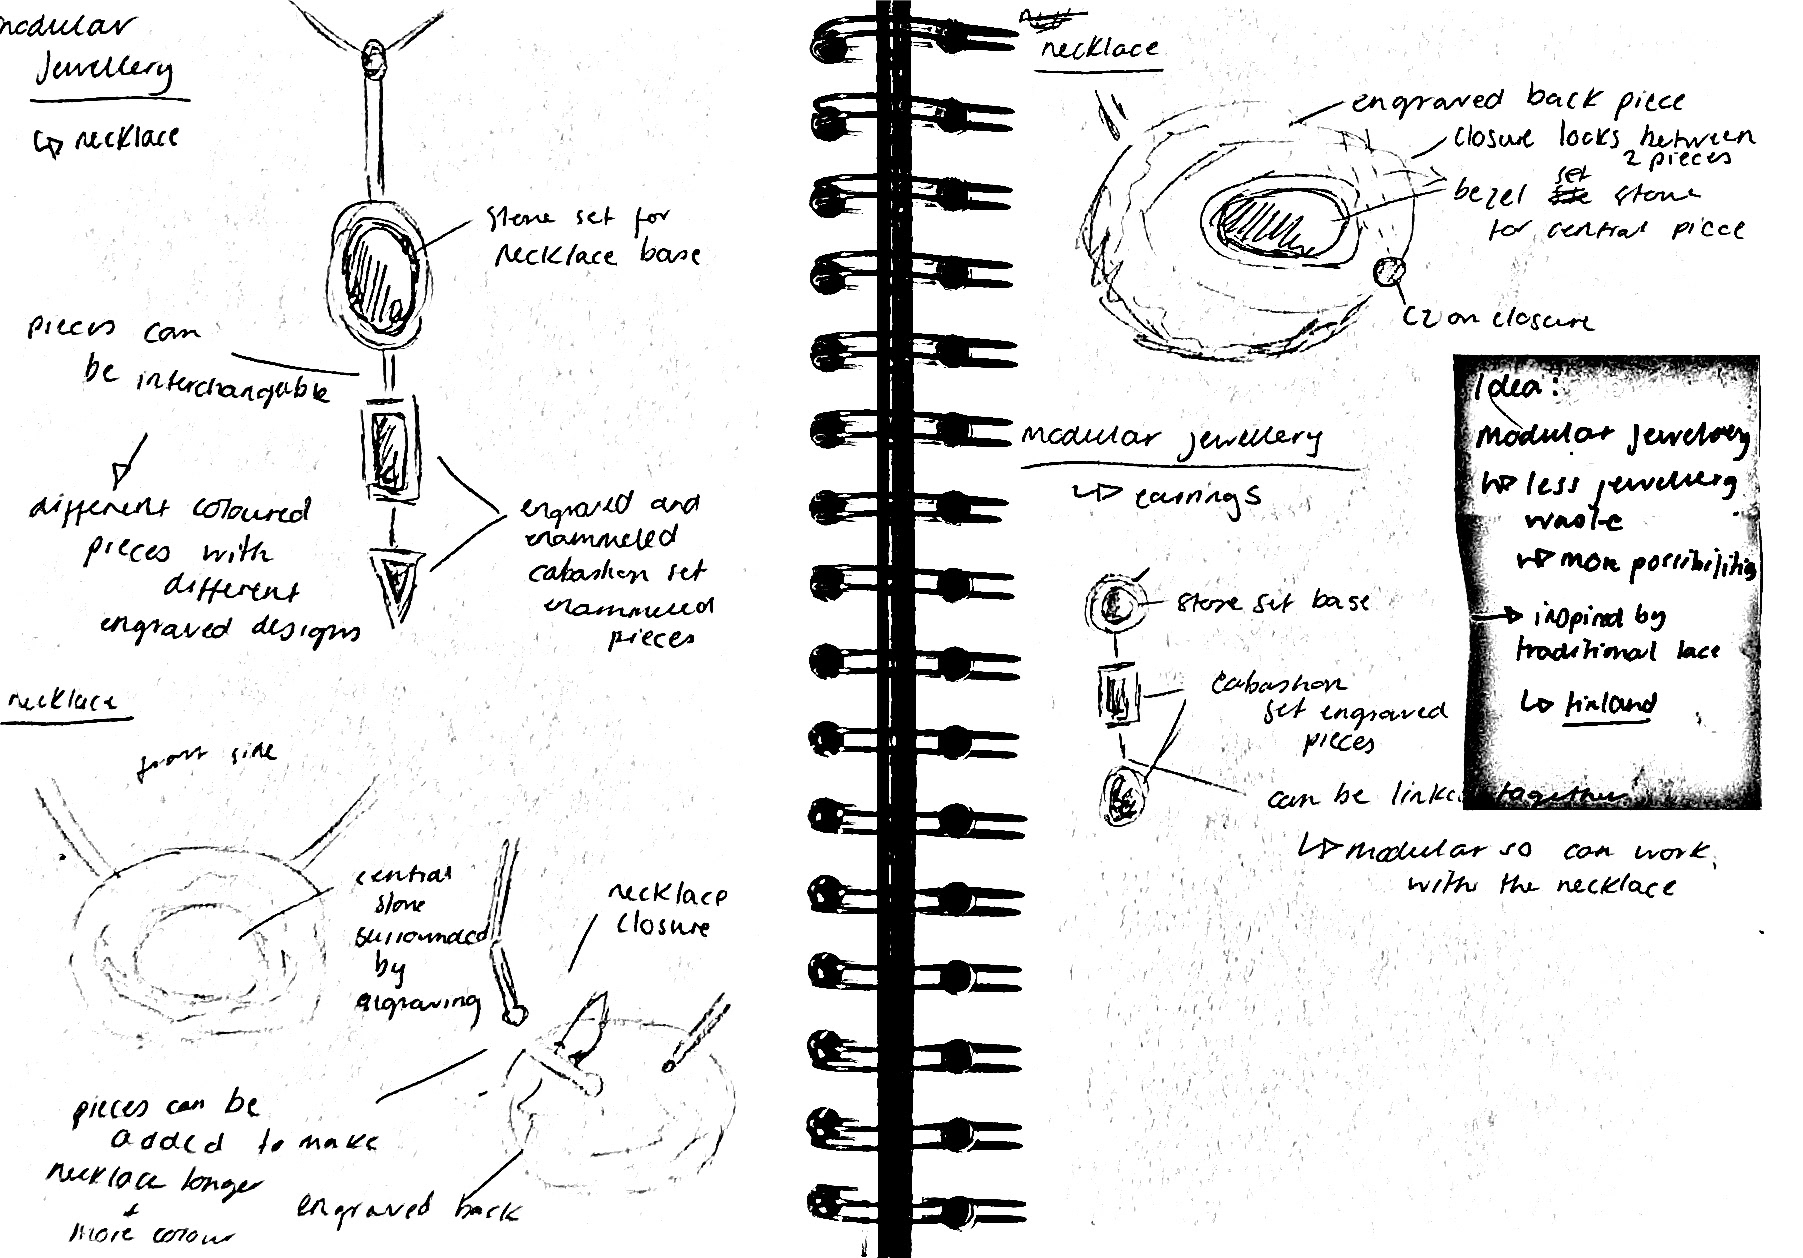 modular
jewellery
↳ necklace
stone set for
necklace base
pieces can
be interchangable
different coloured
pieces with
different
engraved designs
engraved and
enammeled
cabashon set
enammeled
pieces
necklace
front side
central
stone
surrounded
by
engraving
necklace
closure
pieces can be
added to make
necklace longer
+
more colour
engraved back
necklace
engraved back piece
closure locks between
2 pieces
set
bezel stone
for central piece
CZ on closure
modular jewellery
↳ earrings
stone set base
cabashon
set engraved
pieces
can be linked together
↳ modular so can work
with the necklace
Idea:
modular jewelery
↳ less jewellery
waste
↳ more possibilities
→ inspired by
traditional lace
↳ finland